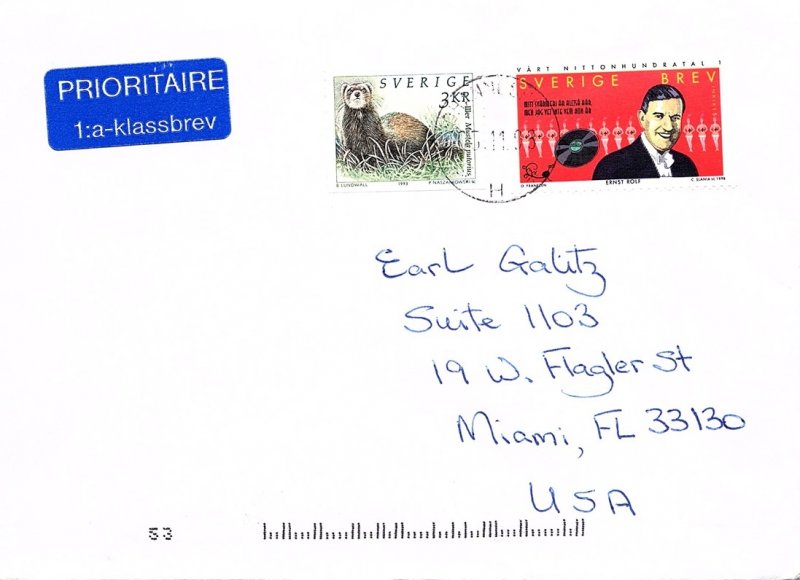 PRIORITAIRE
1:a-klassbrev
SVERIGE
3 KR
Iller Mustela putorius
B LUNDWALL 1993 P NASZARKOWSKI SC
VÅRT NITTONHUNDRATAL 1
SVERIGE BREV
MITT SVÄRMERI ÄR ALLTSÅ HÄR,
MEN JAG VET INTE VEM HON ÄR
ERNST ROLF
C SLANIA SC 1998
H
Earl Galitz
Suite 1103
19 W. Flagler St
Miami, FL 33130
USA
53